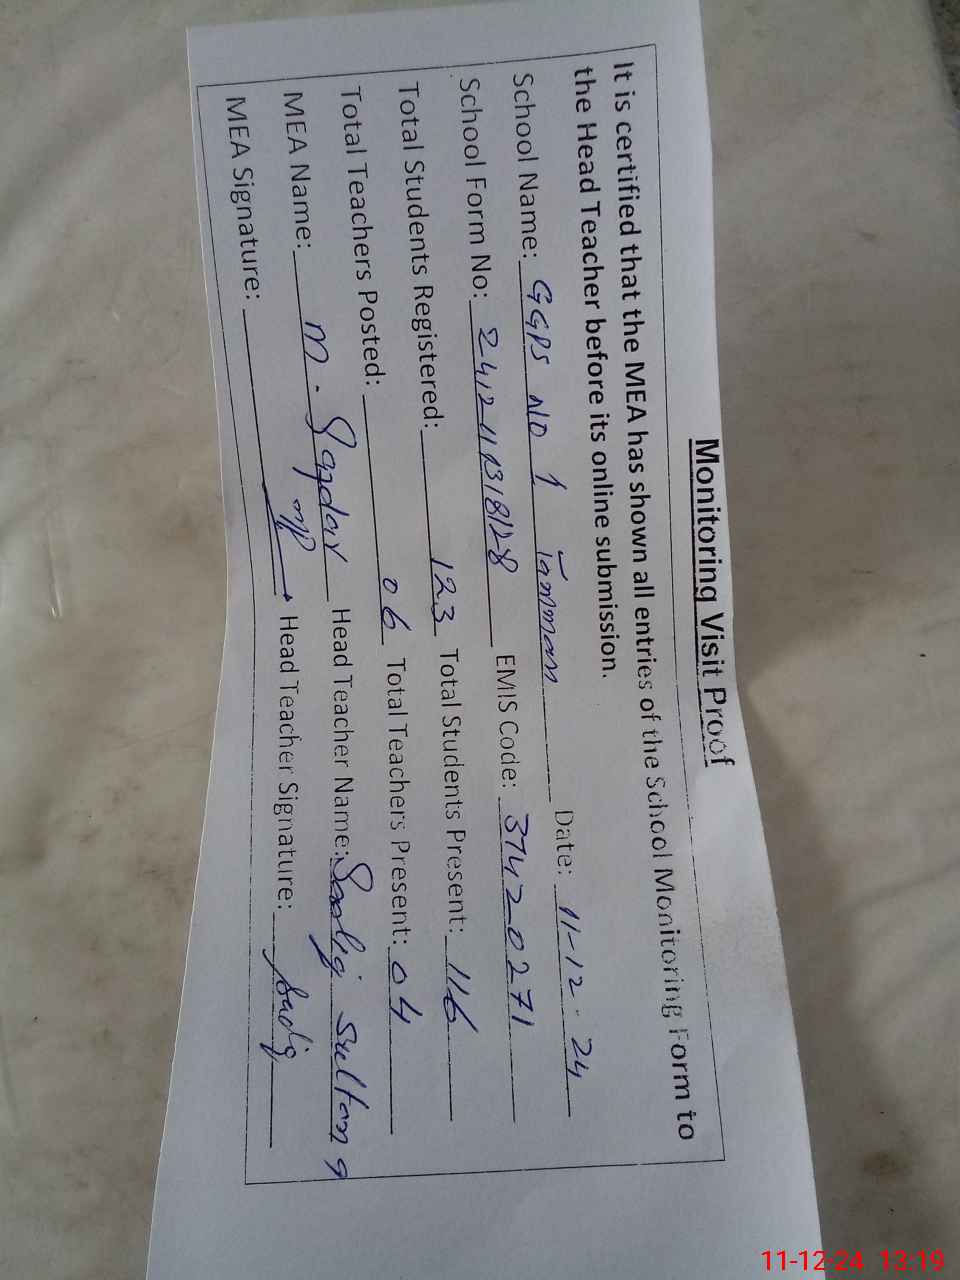 Monitoring Visit Proof
It is certified that the MEA has shown all entries of the School Monitoring Form to
the Head Teacher before its online submission.
School Name: GGPS NO 1 Tamman Date: 11-12-24
School Form No: EMIS Code: 37420271
Total Students Registered: 123 Total Students Present: 116
Total Teachers Posted: 06 Total Teachers Present: 04
MEA Name: M. Head Teacher Name: Sultana
MEA Signature: Head Teacher Signature: Sadiq
11-12-24 13:19